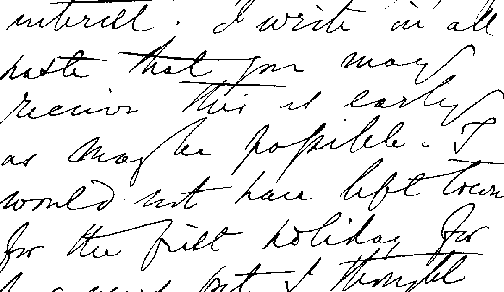 interest. I write in all
haste that you may
receive this as early
as may be possible. I
would not have left town
for the first holiday for
but I thought